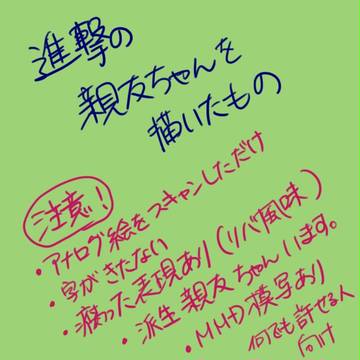 進撃の
親友ちゃんを
描いたもの
注意!
・アナログ絵をスキャンしただけ
・字がきたない
・腐った表現あり(リバ風味)
・派生親友ちゃんいます。
・MMD模写あり
何でも許せる人
向け